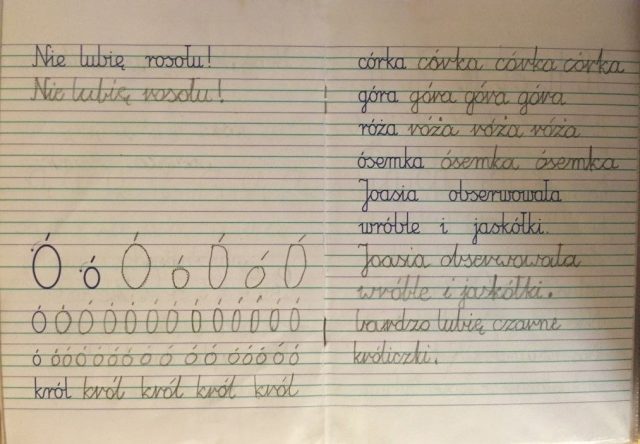 Nie lubię rosołu!
Nie lubię rosołu!
Ó ó Ó ó Ó ó Ó
Ó Ó Ó Ó Ó Ó Ó Ó Ó Ó Ó Ó Ó
ó ó ó ó ó ó ó ó ó ó ó ó ó ó ó ó
król król król król król
córka córka córka córka
góra góra góra góra
róża róża róża róża
ósemka ósemka ósemka
Joasia obserwowała
wróble i jaskółki.
Joasia obserwowała
wróble i jaskółki.
bardzo lubię czarne
króliczki.